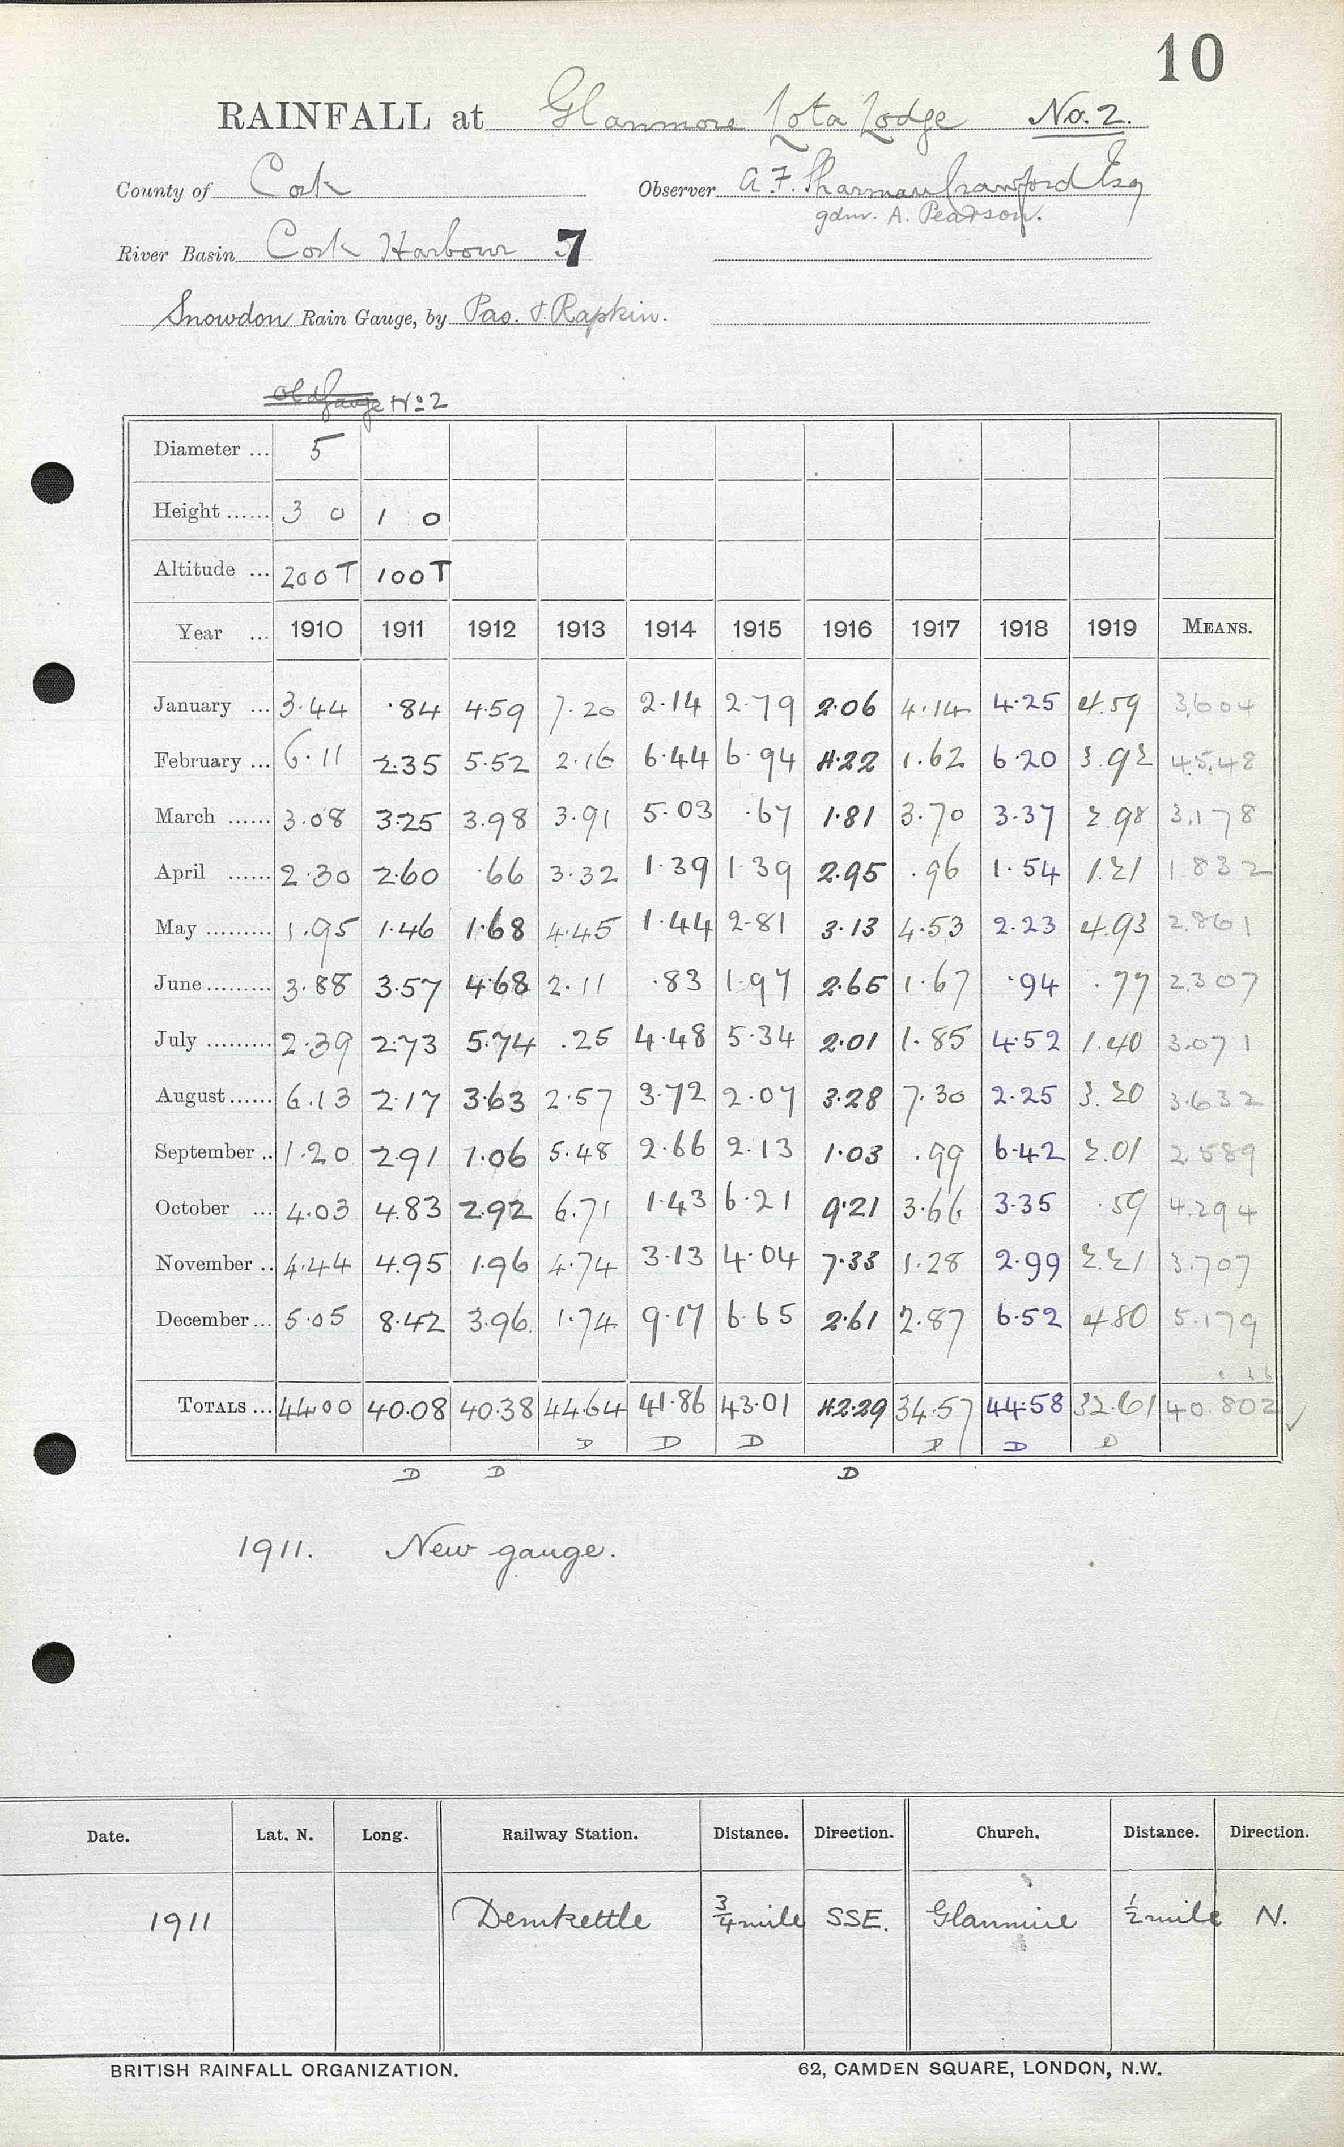 10
RAINFALL at Glanmore Lota Lodge No. 2.
County of Cork Observer A. F. Sharman Crawford Esq
gdnr. A. Pearson.
River Basin Cork Harbour 7
Snowdon Rain Gauge, by Pas. & Rapkin.
Old Gauge No 2
Diameter ... 5
Height ...... 3 0 1 0
Altitude ... 200T 100T
Year ... 1910 1911 1912 1913 1914 1915 1916 1917 1918 1919 MEANS.
January ... 3.44 .84 4.59 7.20 2.14 2.79 2.06 4.14 4.25 4.59 3,604
February ... 6.11 2.35 5.52 2.16 6.44 6.94 4.22 1.62 6.20 3.92 45.48
March ...... 3.08 3.25 3.98 3.91 5.03 .67 1.81 3.70 3.37 2.98 3,178
April ...... 2.30 2.60 .66 3.32 1.39 1.39 2.95 .96 1.54 1.21 1.832
May ......... 1.95 1.46 1.68 4.45 1.44 2.81 3.13 4.53 2.23 4.93 2.861
June ......... 3.88 3.57 4.68 2.11 .83 1.97 2.65 1.67 .94 .77 2,307
July ......... 2.39 2.73 5.74 .25 4.48 5.34 2.01 1.85 4.52 1.40 3.071
August ...... 6.13 2.17 3.63 2.57 3.72 2.07 3.28 7.30 2.25 3.20 3.632
September .. 1.20 2.91 1.06 5.48 2.66 2.13 1.03 .99 6.42 2.01 2.589
October ... 4.03 4.83 2.92 6.71 1.43 6.21 9.21 3.66 3.35 .59 4.294
November .. 4.44 4.95 1.96 4.74 3.13 4.04 7.33 1.28 2.99 2.21 3.707
December ... 5.05 8.42 3.96 1.74 9.17 6.65 2.61 2.87 6.52 4.80 5.179
TOTALS ... 44.00 40.08 40.38 44.64 41.86 43.01 42.29 34.57 44.58 32.61 40.802 ✓
D D D D D D
D D D
1911. New gauge.
Date. Lat. N. Long. Railway Station. Distance. Direction. Church. Distance. Direction.
1911 Dunkettle 3/4 mile SSE. Glanmire 1/2 mile N.
BRITISH RAINFALL ORGANIZATION. 62, CAMDEN SQUARE, LONDON, N.W.